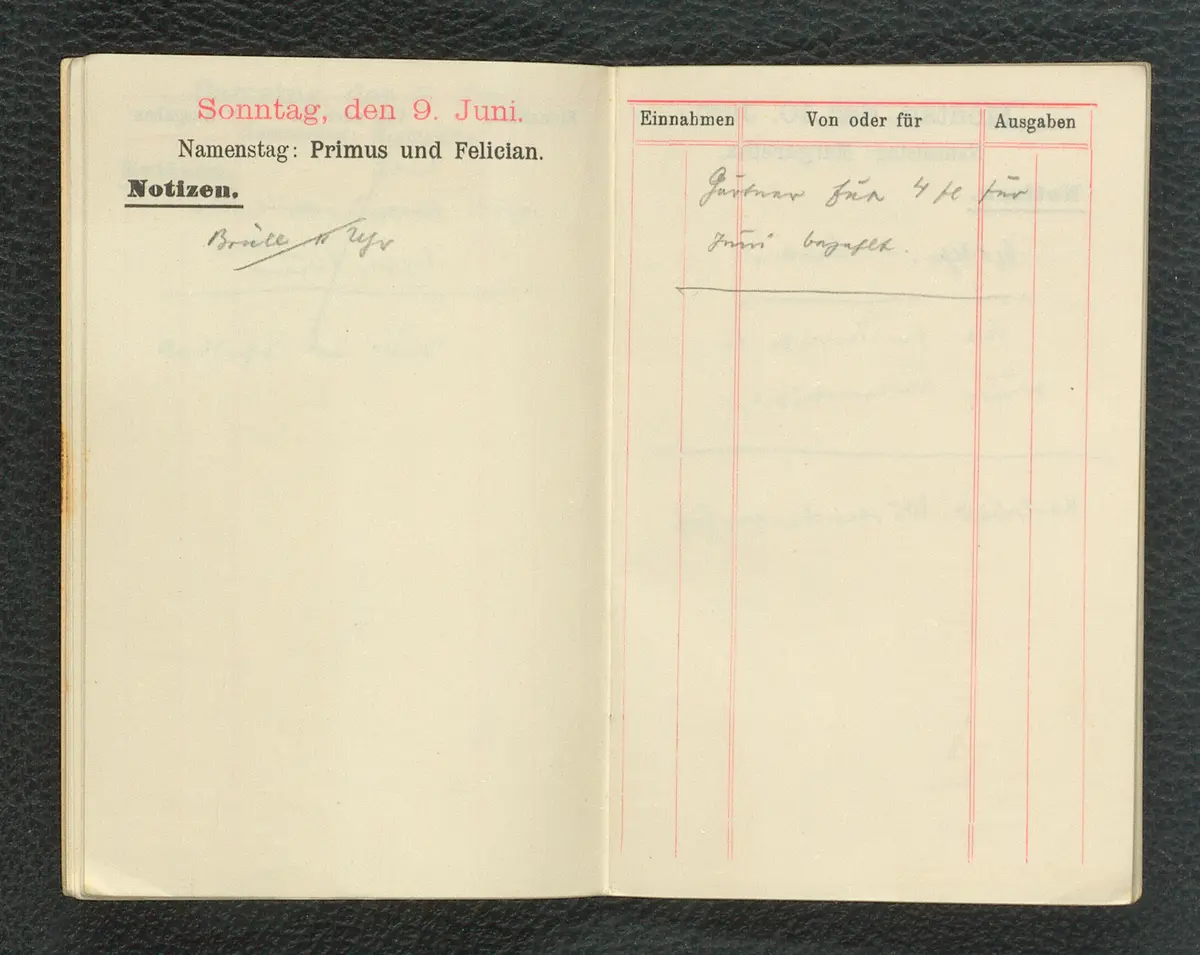 Sonntag, den 9. Juni.
Namenstag: Primus und Felician.
Notizen.
Brüll Uhr
Einnahmen Von oder für Ausgaben
Gärtner für 4 fl für
Juni bezahlt.